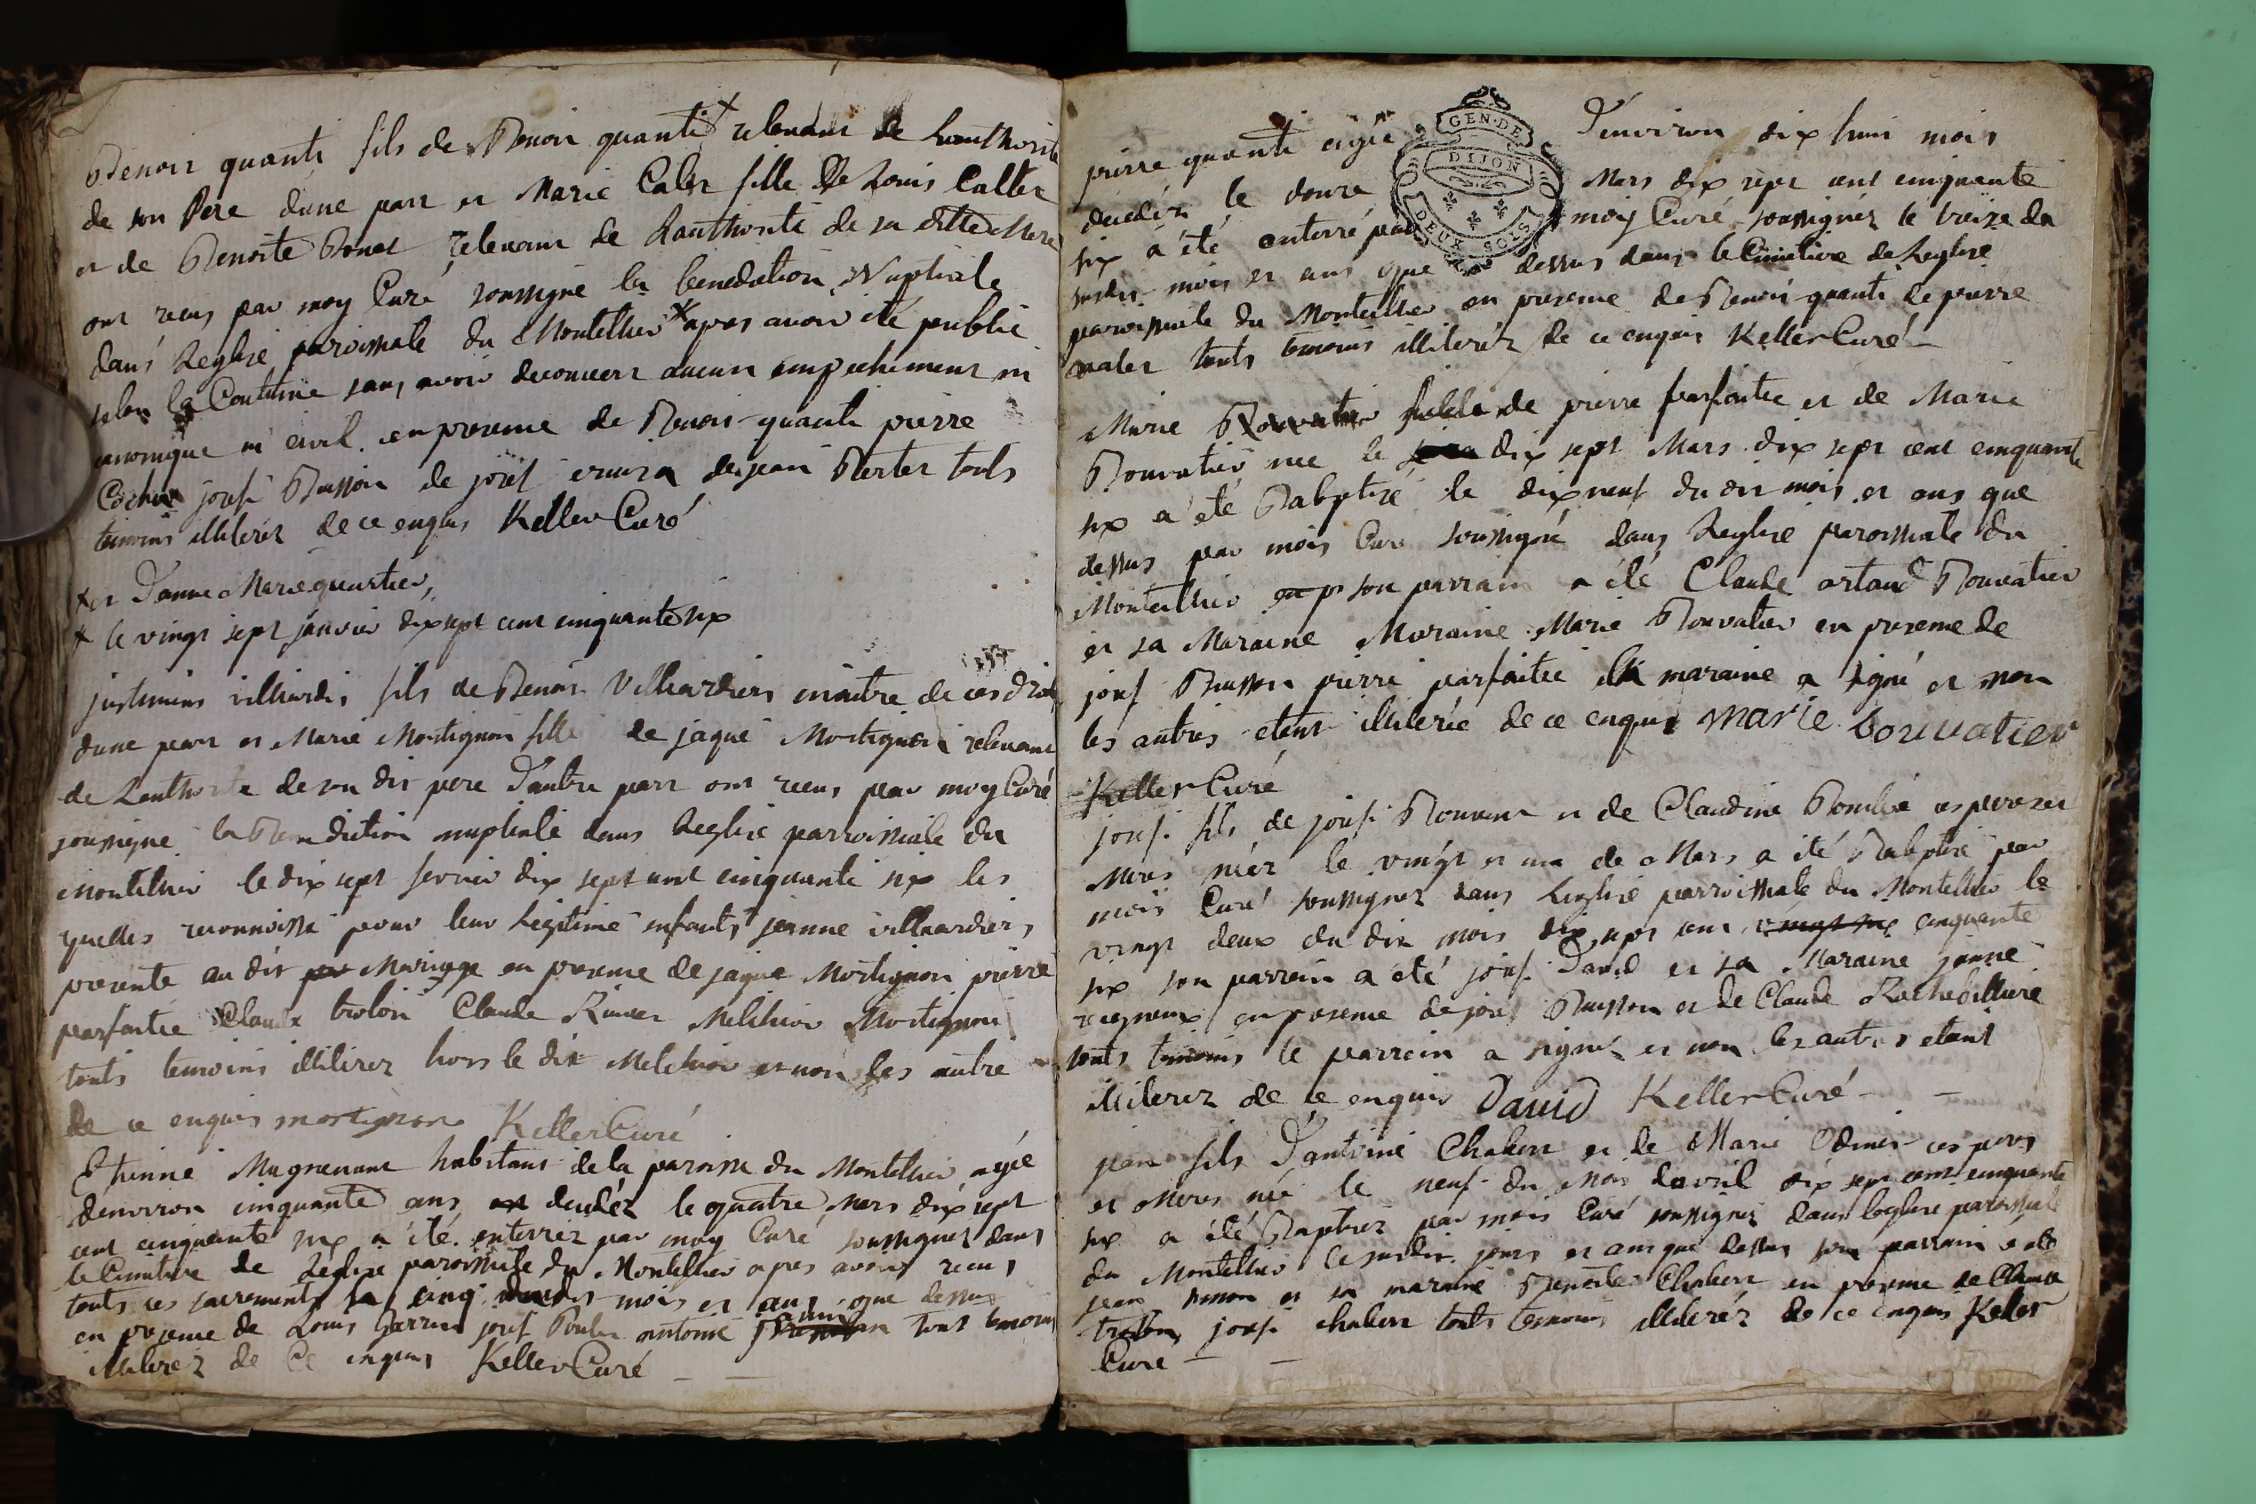 Benoit quanti fils de Benoit quanti x relevant de Lauthorité
de son Pere dune part et Marie Catter fille de Louis Catter
et de Benoite Bonet relevant de Lauthorité de sa ditte Mere
ont receus par moy Curé soussigné la benediction Nuptiale
dans Leglise paroissiale du Montellier x apres avoir été publié
selon la Coutume sans avoir decouvert aucun empechement ni
canonique ni civil en presence de Benoit quanti pierre
josef Buisson de josef de jean touts
temoins illiterez de ce enquis Keller Curé
x et Danne Marie quartier,
x le vingt sept janvier dix sept cent cinquante six
villiardis fils de Benoit Villiardiers maitre de ces droits
dune part et Marie Mortignon fille de jaque Mortignon relevant
de Lauthorité de son dit pere Dautre part ont receus par moy Curé
soussigné la Benediction nuptiale dans Leglise parroissiale du
Montellier le dix sept fevrier dix sept cent cinquante six les
quelles reconnoisse pour leur Legitime enfants jeanne villiardiers
presente au dit par Mariage en presence de jaque Mortignon pierre
parfaitte Claude trolon Claude Mélchior Mortignon
touts temoins illiterez hors le dit Melchior et non les autre
de ce enquis mortignon Keller Curé
Etienne Magnenant habitant de la paroisse du Montellier agée
denviron cinquante ans et decedéz le quatre Mars dix sept
cent cinquante six a été enterréz par moy Curé soussignez dans
le Cimetiere de Leglise paroissiale du Montellier apres avoir receus
touts ces sacrements le cinq mois et ans que dessus
en presence de Louis josef antoine tout temoins
illiterez de Ce enquis Keller Curé
pierre quanti agée Denviron dix huit mois
decedéz le douze Mars dix sept cent cinquante
six a été enterré par moy Curé soussignéz le treize du
susdit mois et ans que dessus dans le Cimetiere de Leglise
paroissiale du Montellier en presence de Benoit quanti de pierre
touts temoins illiteréz de ce enquis Keller Curé
Marie Bouvatier fille de pierre parfaitte et de Marie
Bouvatier nee le dix sept Mars dix sept cent cinquante
six a été Babptisé le dix neuf du dit mois et ans que
dessus par mois Curé soussigné dans Leglise paroissiale du
Montellier son parrain a été Claude artaud Bouvatier
et sa Maraine Maraine Marie Bouvatier en presence de
josef Buisson pierre parfaitte la maraine a signé et non
les autres etant illiterée de ce enquis marie bouvatier
Keller Curé
josef fils de josef et de Claudine ces peres et
Meres néez le vingt et un de Mars a été Babptisé par
mois Curé soussignez dans Leglise parroissiale du Montellier le
vingt deux du dit mois dix sept cent vingt six cinquante
six son parrein a été josef David et sa Maraine janne
en presence de josef Buisson et de Claude Rochebilliere
touts temoins le parrein a signéz et non les autres etant
illiterez de ce enquis David Keller Curé
jean fils Dantoine Chabert et de Marie ces peres
et Meres née le neuf du Mois davril dix sept cent cinquante
six a été Baptisez par mois Curé soussignez dans leglise paroissiale
du Montellier le susdit jours et ans que dessus son parrain a été
jean et sa maraine Benoite Chabert en presence de Claude
trolon josef chabert touts temoins illiteréz de ce enquis Keller
Curé
GEN. DE
DIJON
DEUX SOLS